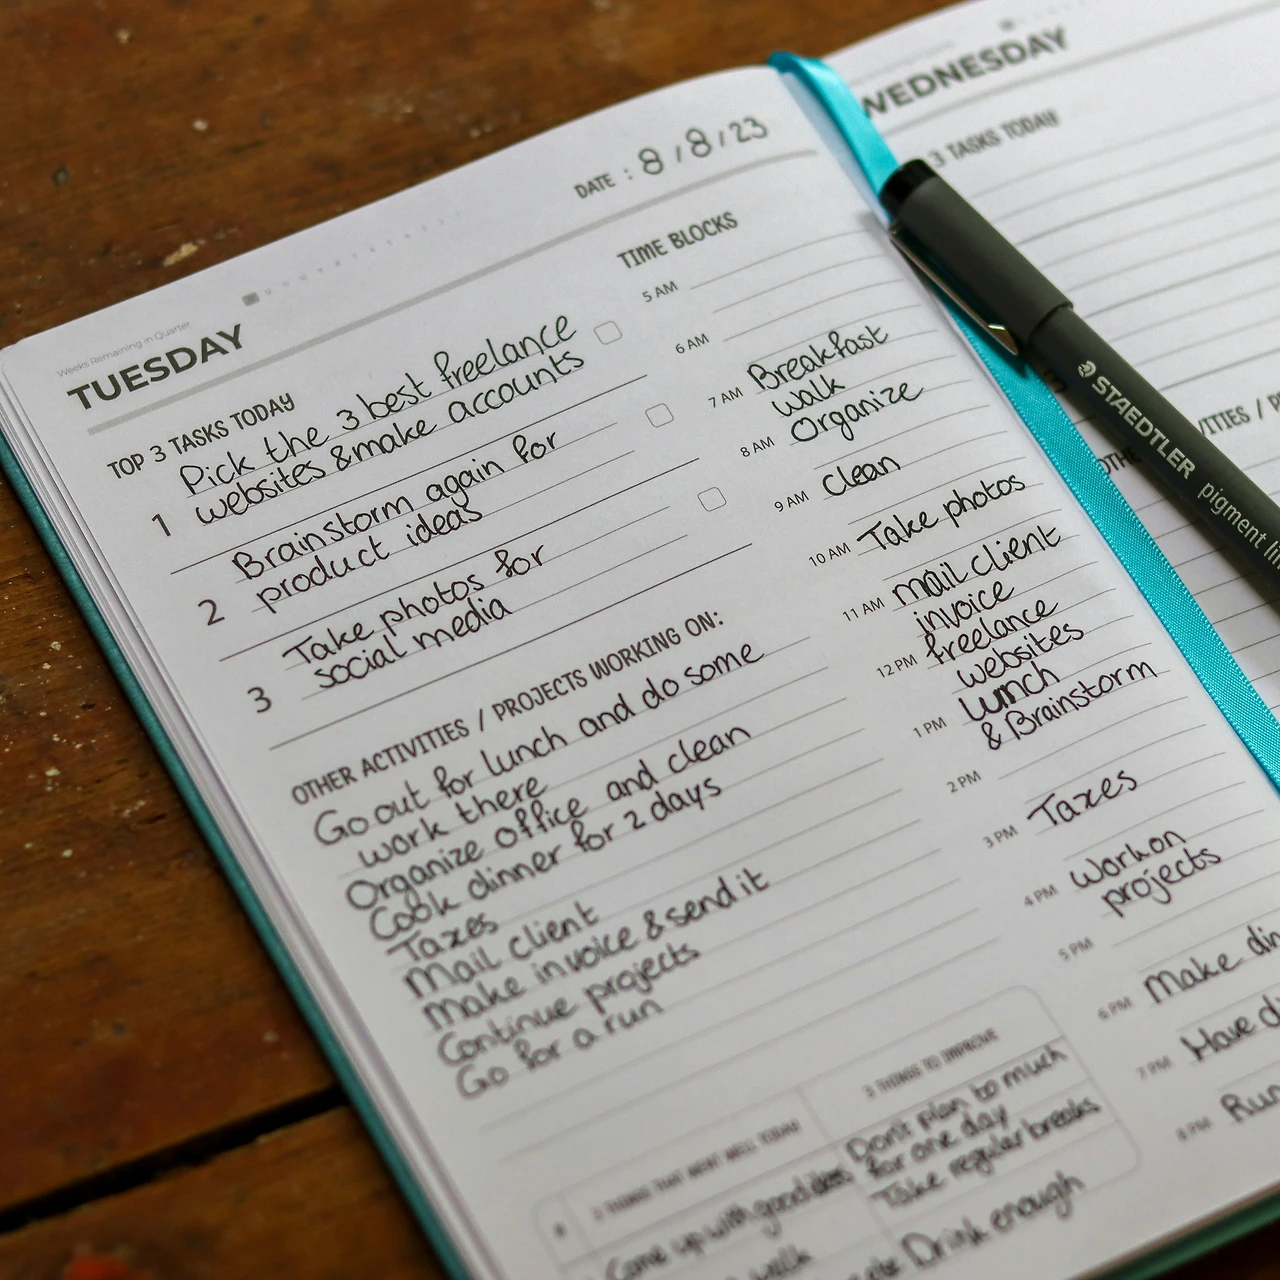 Weeks Remaining in Quarter
TUESDAY
DATE : 8/8/23
TOP 3 TASKS TODAY
Pick the 3 best freelance
1 websites & make accounts
Brainstorm again for
2 product ideas
Take photos for
3 social media
OTHER ACTIVITIES / PROJECTS WORKING ON:
Go out for lunch and do some
work there
Organize office and clean
Cook dinner for 2 days
Taxes
Mail client
Make invoice & send it
Continue projects
Go for a run
TIME BLOCKS
5 AM
6 AM
7 AM Breakfast
walk
8 AM Organize
9 AM Clean
10 AM Take photos
11 AM mail client
invoice
12 PM freelance
websites
1 PM lunch
& Brainstorm
2 PM
3 PM Taxes
4 PM Work on
projects
5 PM
6 PM Make din
7 PM Have d
8 PM Run
3 THINGS THAT WENT WELL TODAY
Came up with good ideas
walk
3 THINGS TO IMPROVE
Don't plan to much
for one day
Take regular breaks
Drink enough
WEDNESDAY
3 TASKS TODAY
VITIES / P
OTHE
STAEDTLER pigment lin